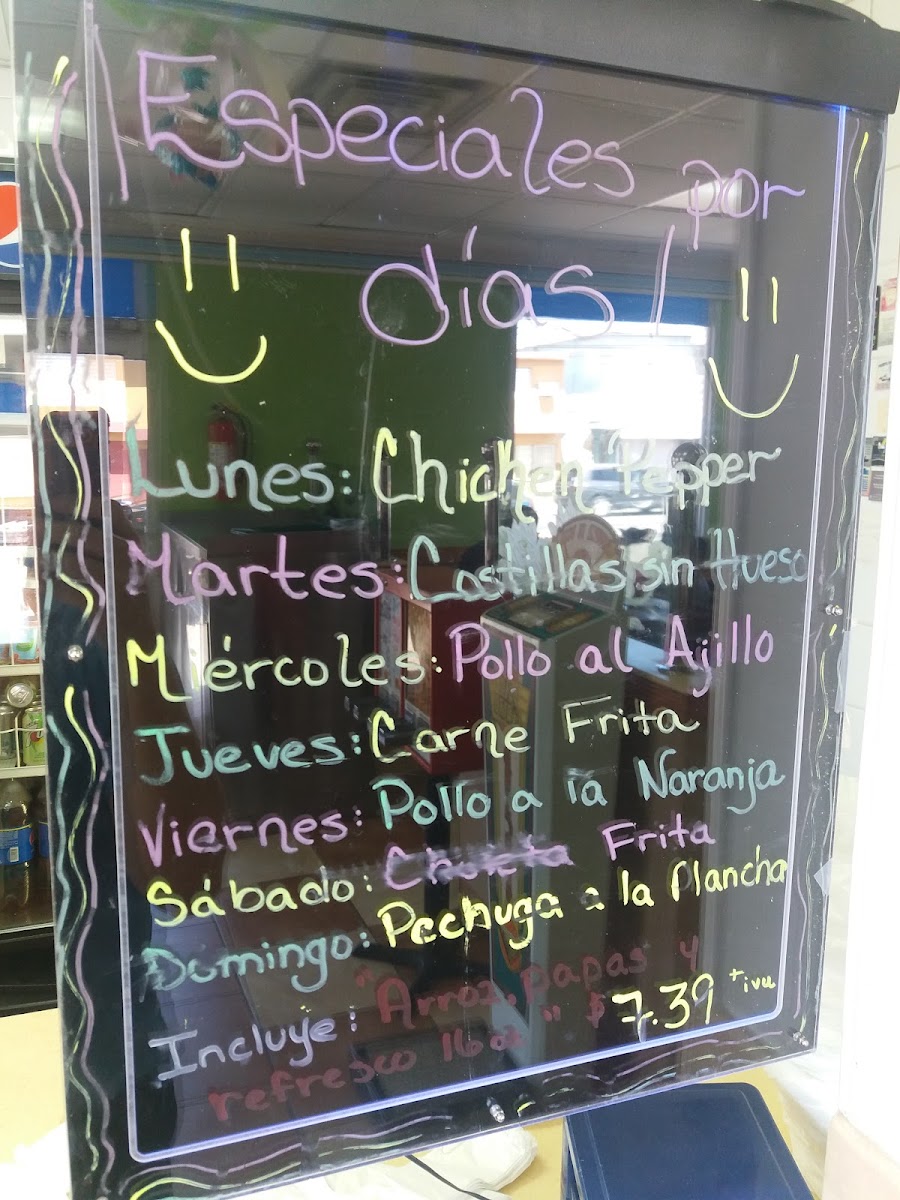 Especiales por
días!
Lunes: Chicken Pepper
Martes: Costillas sin Hueso
Miércoles: Pollo al Ajillo
Jueves: Carne Frita
Viernes: Pollo a la Naranja
Sábado: Chuleta Frita
Domingo: Pechuga a la Plancha
Incluye: "Arroz, papas y
refresco 16 oz" $7.39 + ivu